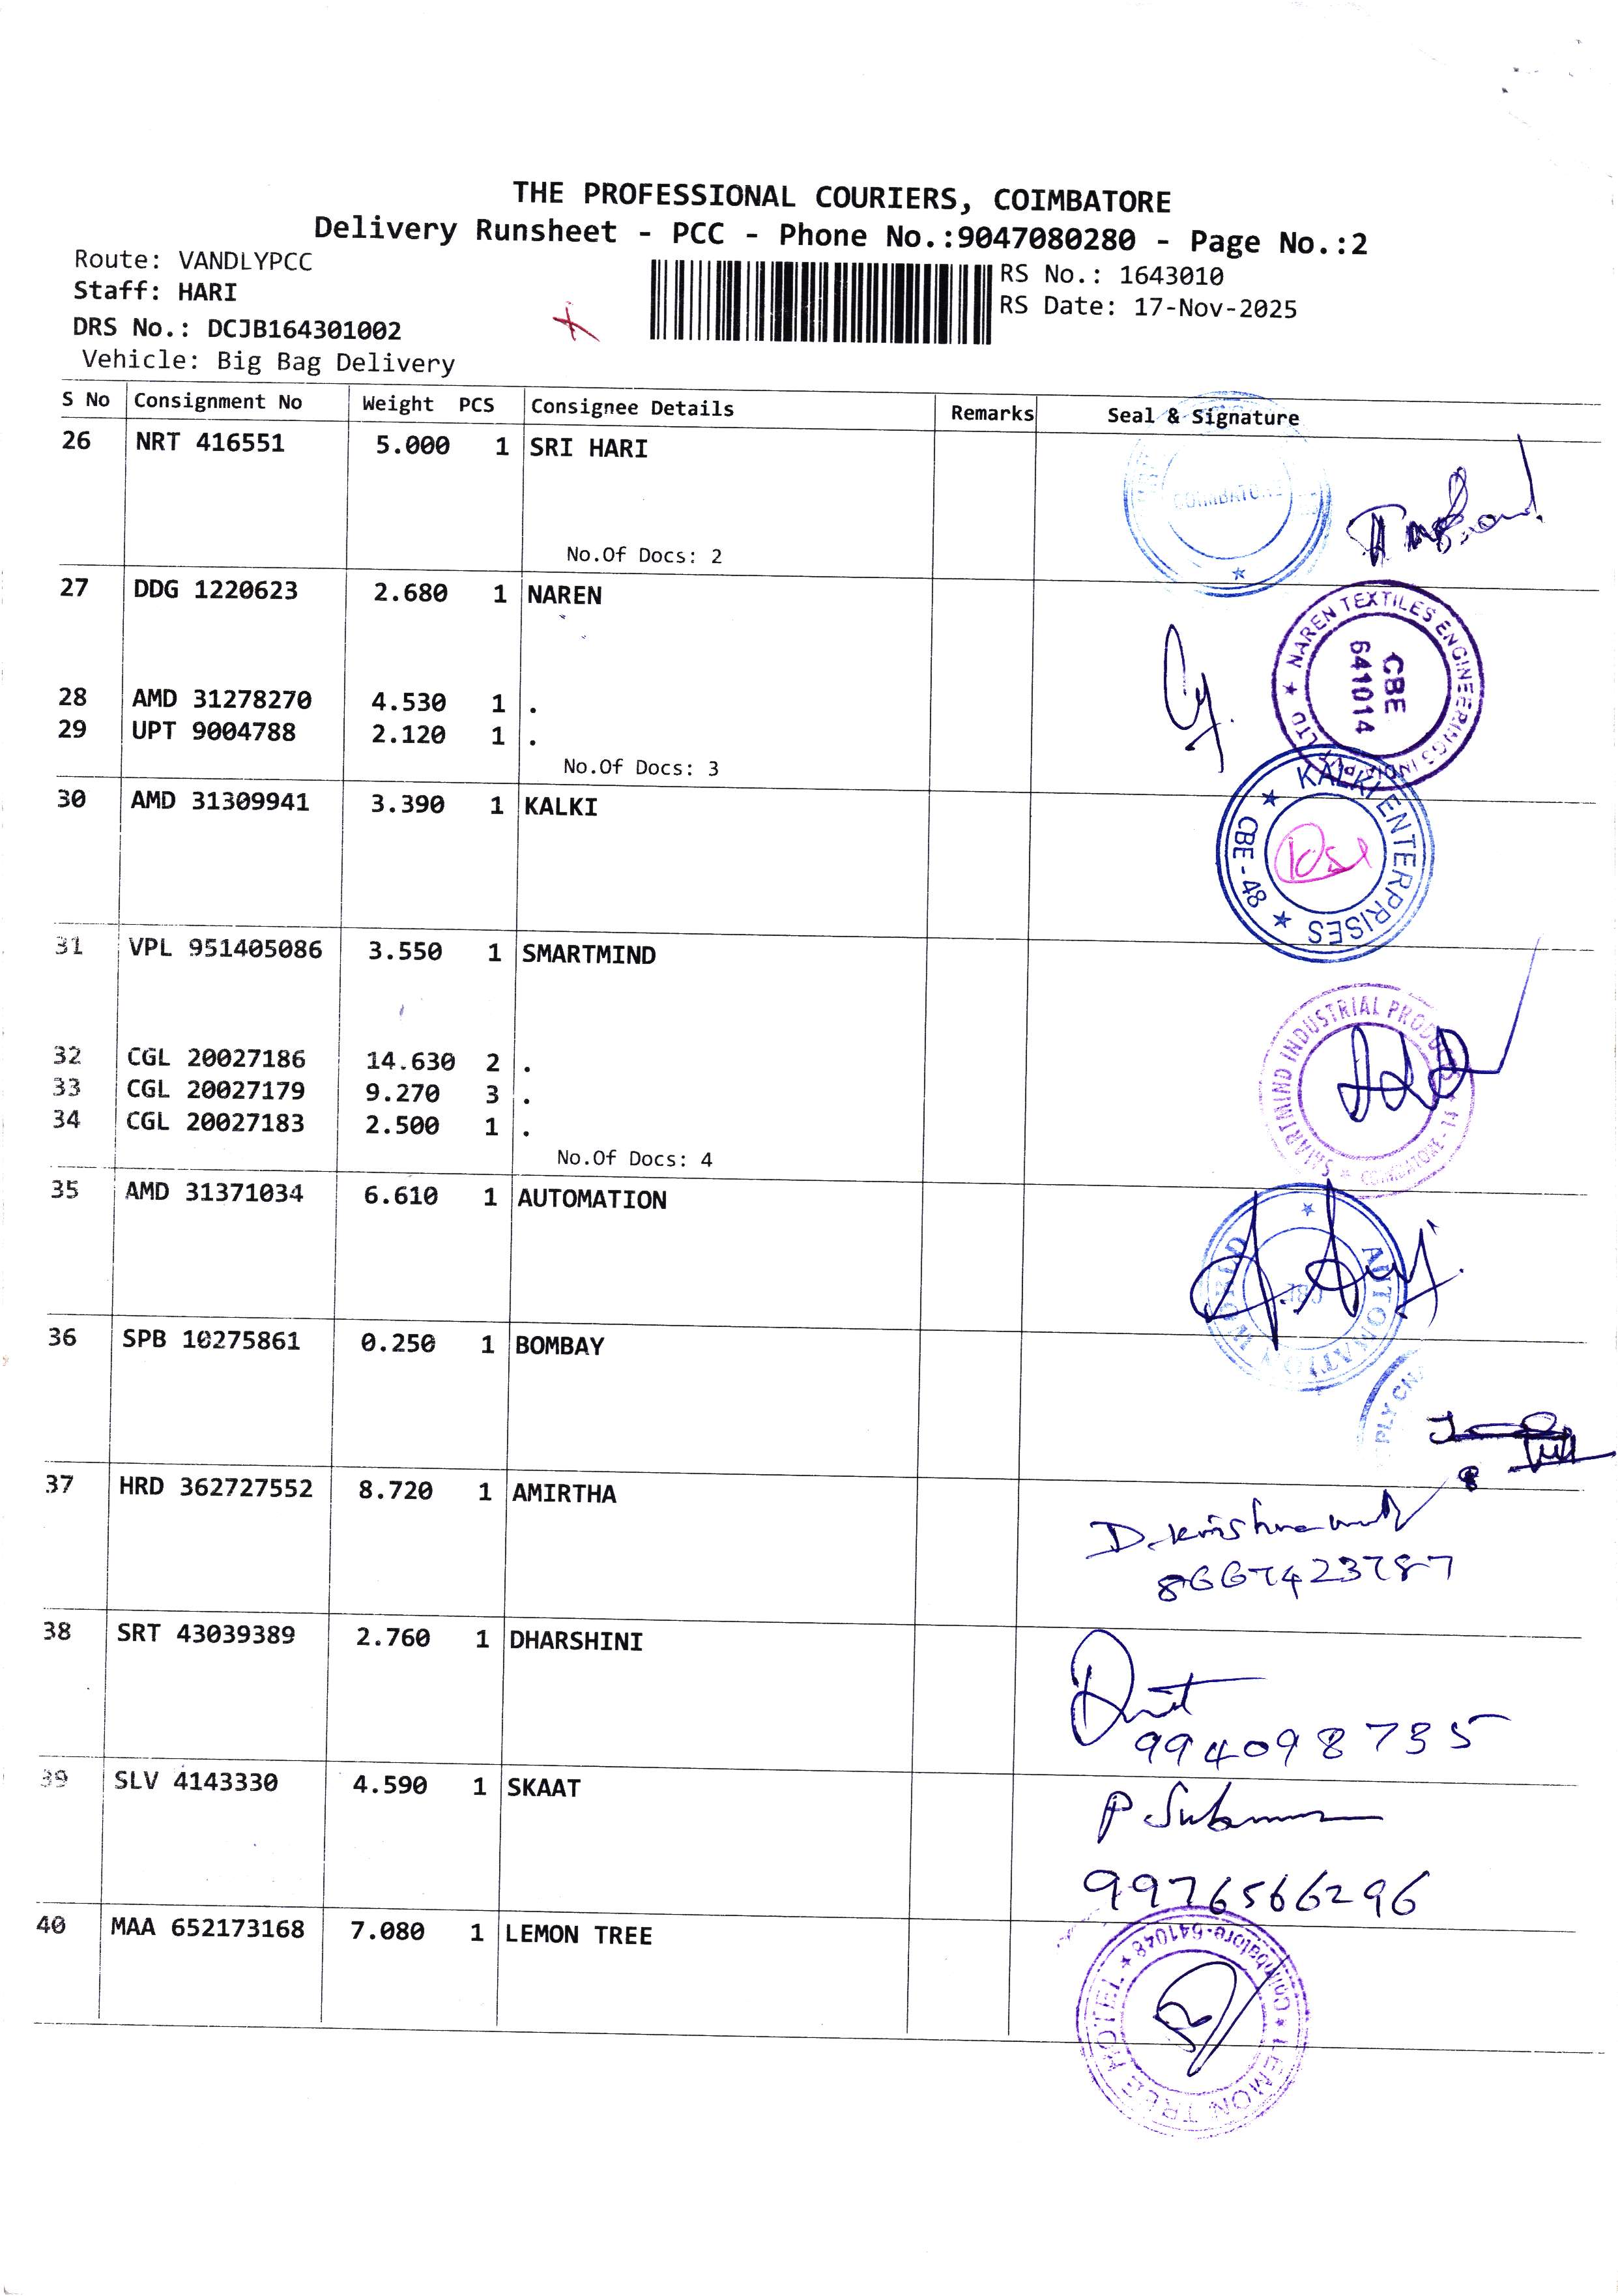 THE PROFESSIONAL COURIERS, COIMBATORE
Delivery Runsheet - PCC - Phone No.:9047080280 - Page No.:2
Route: VANDLYPCC
Staff: HARI
DRS No.: DCJB164301002
Vehicle: Big Bag Delivery
RS No.: 1643010
RS Date: 17-Nov-2025
S No Consignment No Weight PCS Consignee Details Remarks Seal & Signature
26 NRT 416551 5.000 1 SRI HARI
COIMBATORE
No.Of Docs: 2
27 DDG 1220623 2.680 1 NAREN
NAREN TEXTILES ENGINEERINGS INDIA PVT LTD
CBE
641014
28 AMD 31278270 4.530 1 .
29 UPT 9004788 2.120 1 .
No.Of Docs: 3
30 AMD 31309941 3.390 1 KALKI
KALKI ENTERPRISES
CBE-48
31 VPL 951405086 3.550 1 SMARTMIND
SMARTMIND INDUSTRIAL PRODUCTS
COIMBATORE-14
32 CGL 20027186 14.630 2 .
33 CGL 20027179 9.270 3 .
34 CGL 20027183 2.500 1 .
No.Of Docs: 4
35 AMD 31371034 6.610 1 AUTOMATION
AUTOMATION WORLD
36 SPB 10275861 0.250 1 BOMBAY
PLY
37 HRD 362727552 8.720 1 AMIRTHA
8667423787
38 SRT 43039389 2.760 1 DHARSHINI
994098735
39 SLV 4143330 4.590 1 SKAAT
9976566296
40 MAA 652173168 7.080 1 LEMON TREE
LEMON TREE HOTEL
Coimbatore-641048